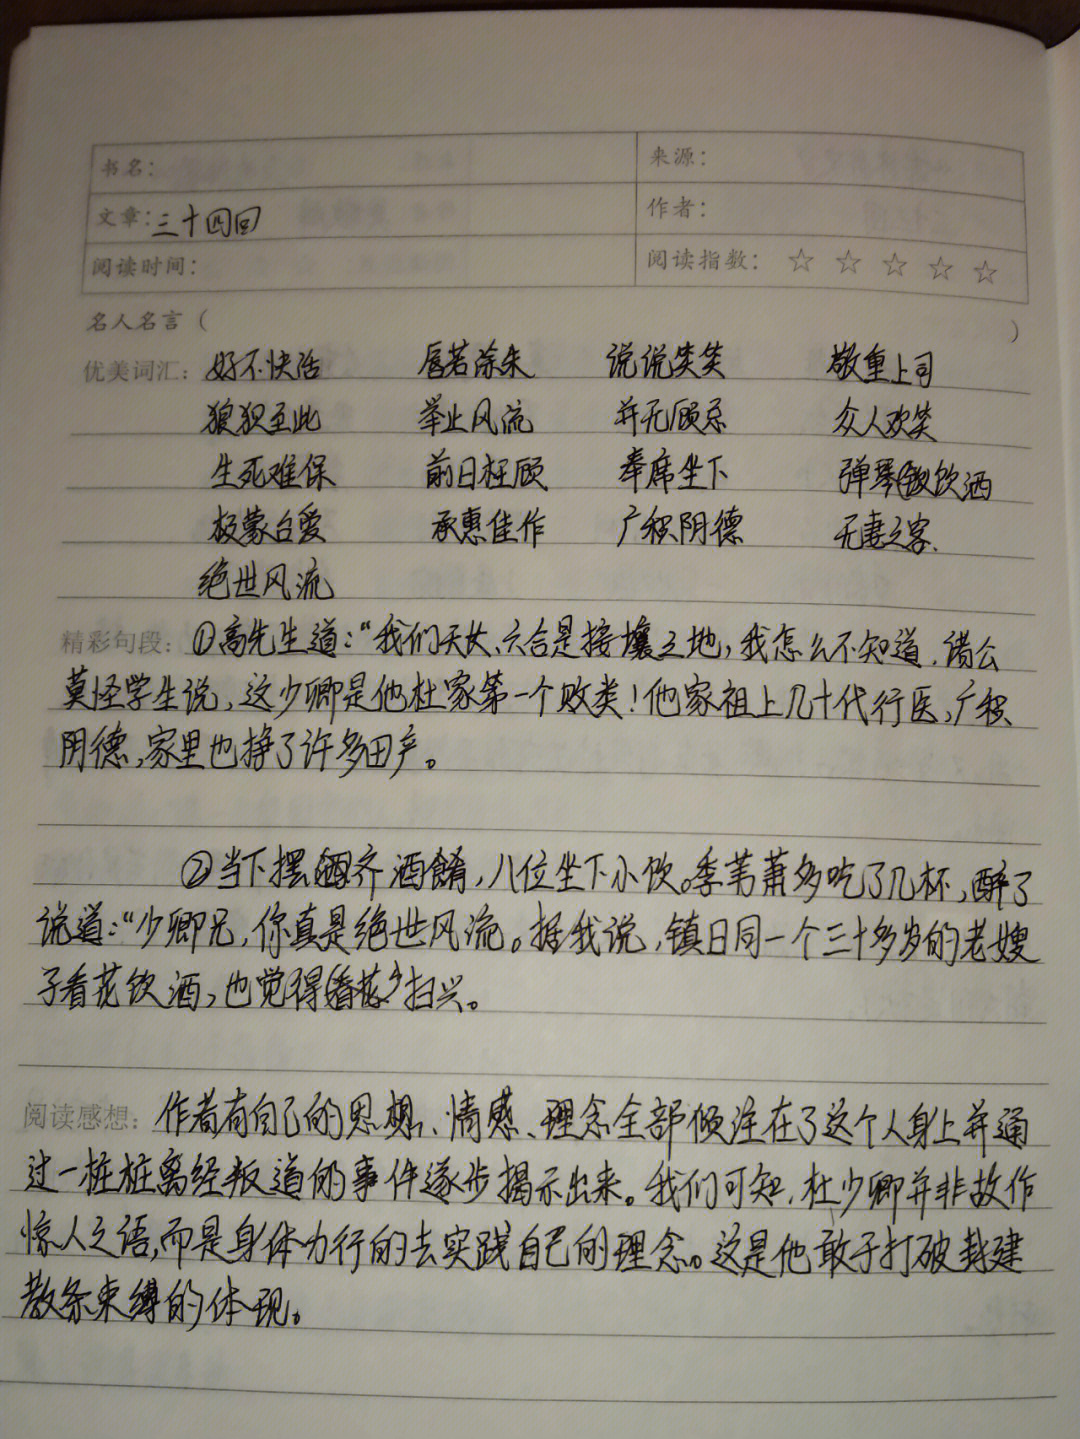 书名： 来源：
文章：三十四回 作者：
阅读时间： 阅读指数：☆ ☆ ☆ ☆ ☆
名人名言（ ）
优美词汇：好不快活 唇若涂朱 说说笑笑 敬重上司
狼狈至此 举止风流 并无顾忌 众人欢笑
生死难保 前日枉顾 奉席坐下 弹琴饮酒
极蒙台爱 承惠佳作 广积阴德 无妻之客、
绝世风流
精彩句段：①高先生道：“我们天长、六合是接壤之地，我怎么不知道．诸公
莫怪学生说，这少卿是他杜家第一个败类！他家祖上几十代行医，广积
阴德，家里也挣了许多田产。
②当下摆齐酒肴，八位坐下小饮。季苇萧多吃了几杯，醉了
说道：“少卿兄，你真是绝世风流。据我说，镇日同一个三十多岁的老嫂
子看花饮酒，也觉得扫兴。
阅读感想：作者有自己的思想、情感、理念全部倾注在了这个人身上并通
过一桩桩离经叛道的事件逐步揭示出来。我们可知，杜少卿并非故作
惊人之语，而是身体力行的去实践自己的理念。这是他敢于打破封建
教条束缚的体现。